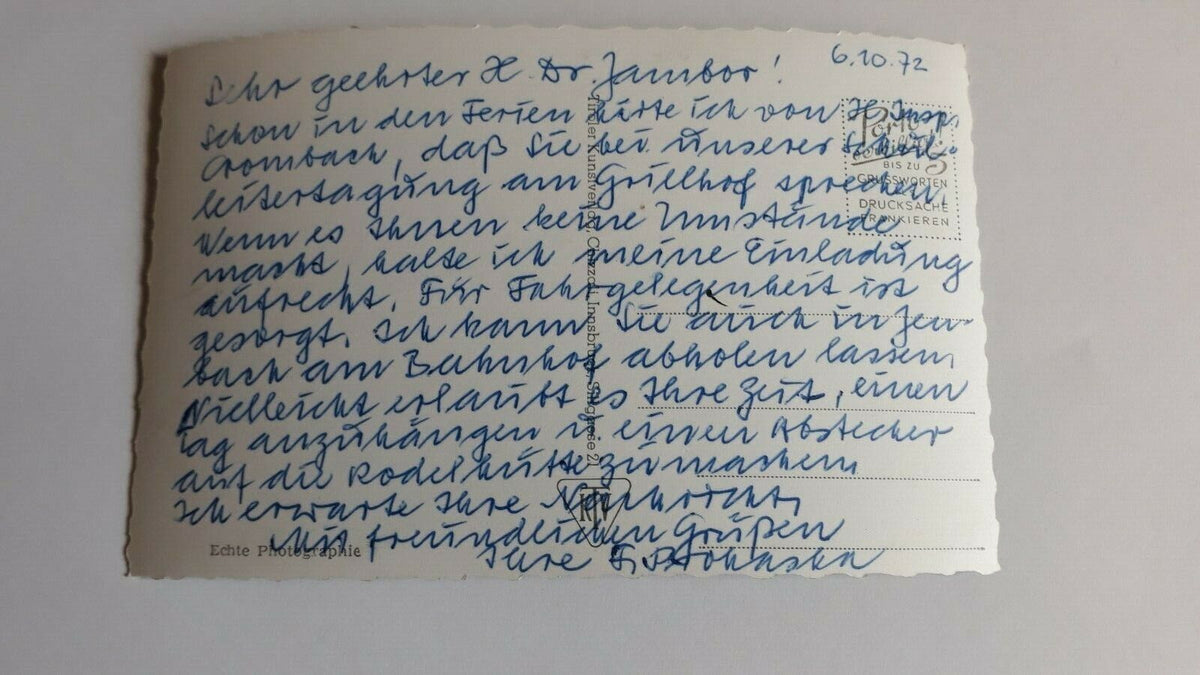 6.10.72
Sehr geehrter H. Dr. Jambor!
Schon in den Ferien hörte ich von H. Insp.
Crombach, daß Sie bei unserer Schul-
leitertagung am Grillhof sprechen.
Wenn es Ihnen keine Umstände
macht, halte ich meine Einladung
aufrecht. Für Fahrgelegenheit ist
gesorgt. Ich kann Sie auch in Jen-
bach am Bahnhof abholen lassen.
Vielleicht erlaubt es Ihre Zeit, einen
Tag anzuhängen u. einen Abstecher
auf die Rodelhütte zu machen.
Ich erwarte Ihre Nachricht.
Mit freundlichen Grüßen
Ihre
Porto
BIS ZU 5
GRUSSWORTEN
DRUCKSACHE
FRANKIEREN
Tiroler Kunstverlag Chizzali, Innsbruck, Sillgasse 21
KTV
Echte Photographie